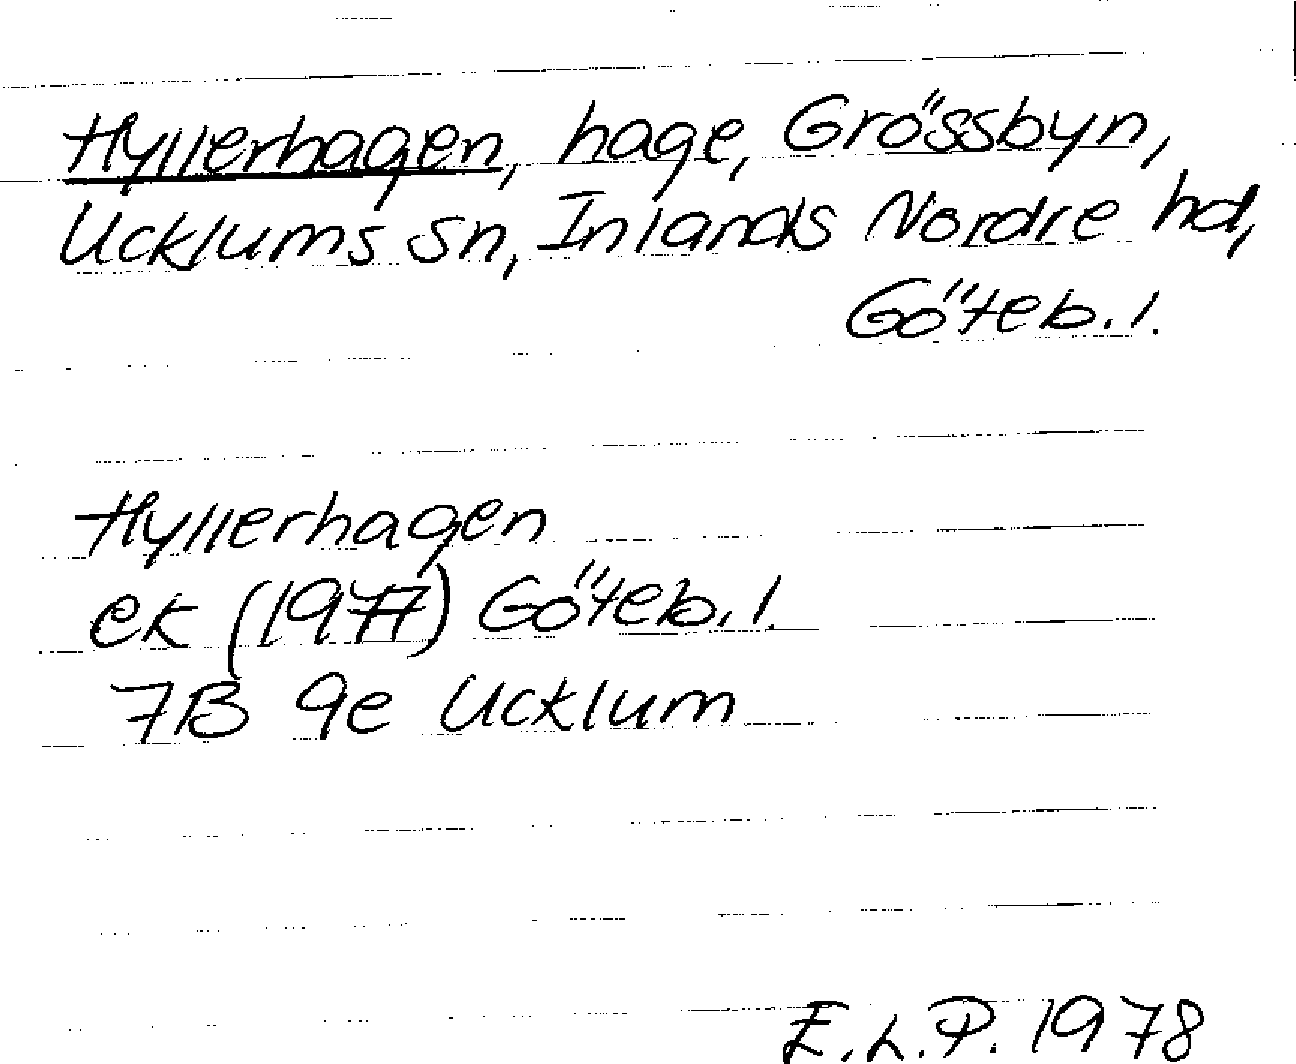 Hyllerhagen, hage, Grössbyn,
Ucklums sn, Inlands Nordre hd,
Göteb. l.
Hyllerhagen
ek (1977) Göteb. l.
7B 9e Ucklum
E.L.P. 1978